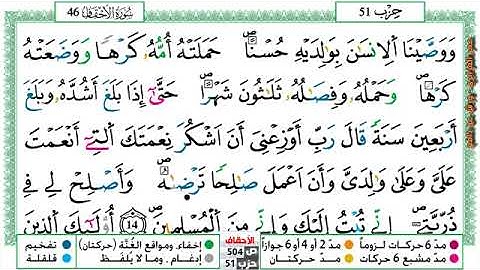 حِزْب 51
سُورَةُ الأَحْقَاف 46
وَوَصَّيْنَا اَلِانسَٰنَ بِوَٰلِدَيْهِ حُسْناًۖ حَمَلَتْهُ أُمُّهُۥ كَرْهاٗ وَوَضَعَتْهُ
كَرْهاٗۖ وَحَمْلُهُۥ وَفِصَٰلُهُۥ ثَلَٰثُونَ شَهْراًۖ حَتَّىٰٓ إِذَا بَلَغَ أَشُدَّهُۥ وَبَلَغَ
أَرْبَعِينَ سَنَةٗ قَالَ رَبِّ أَوْزِعْنِيَ أَنَ اَشْكُرَ نِعْمَتَكَ اَلتِےٓ أَنْعَمْتَ
عَلَيَّ وَعَلَىٰ وَٰلِدَيَّ وَأَنَ اَعْمَلَ صَٰلِحاٗ تَرْضَىٰهُۖ وَأَصْلِحْ لِے فِے
ذُرِّيَّتِيَۖ إِنِّے تُبْتُ إِلَيْكَ وَإِنِّے مِنَ اَلْمُسْلِمِينَۖ 14 أُوْلَٰٓئِكَ اَلذِينَ
مدّ 6 حركات لزوماً مدّ 2 أو 4 أو 6 جوازاً الأحقاف ص 504 حزب 51 إخفاء، ومواقع الغُنَّة (حركتان) تفخيم
مدّ مشبع 6 حركات مدّ حركتان إدغام، وما لا يُلفَظ قلقلة